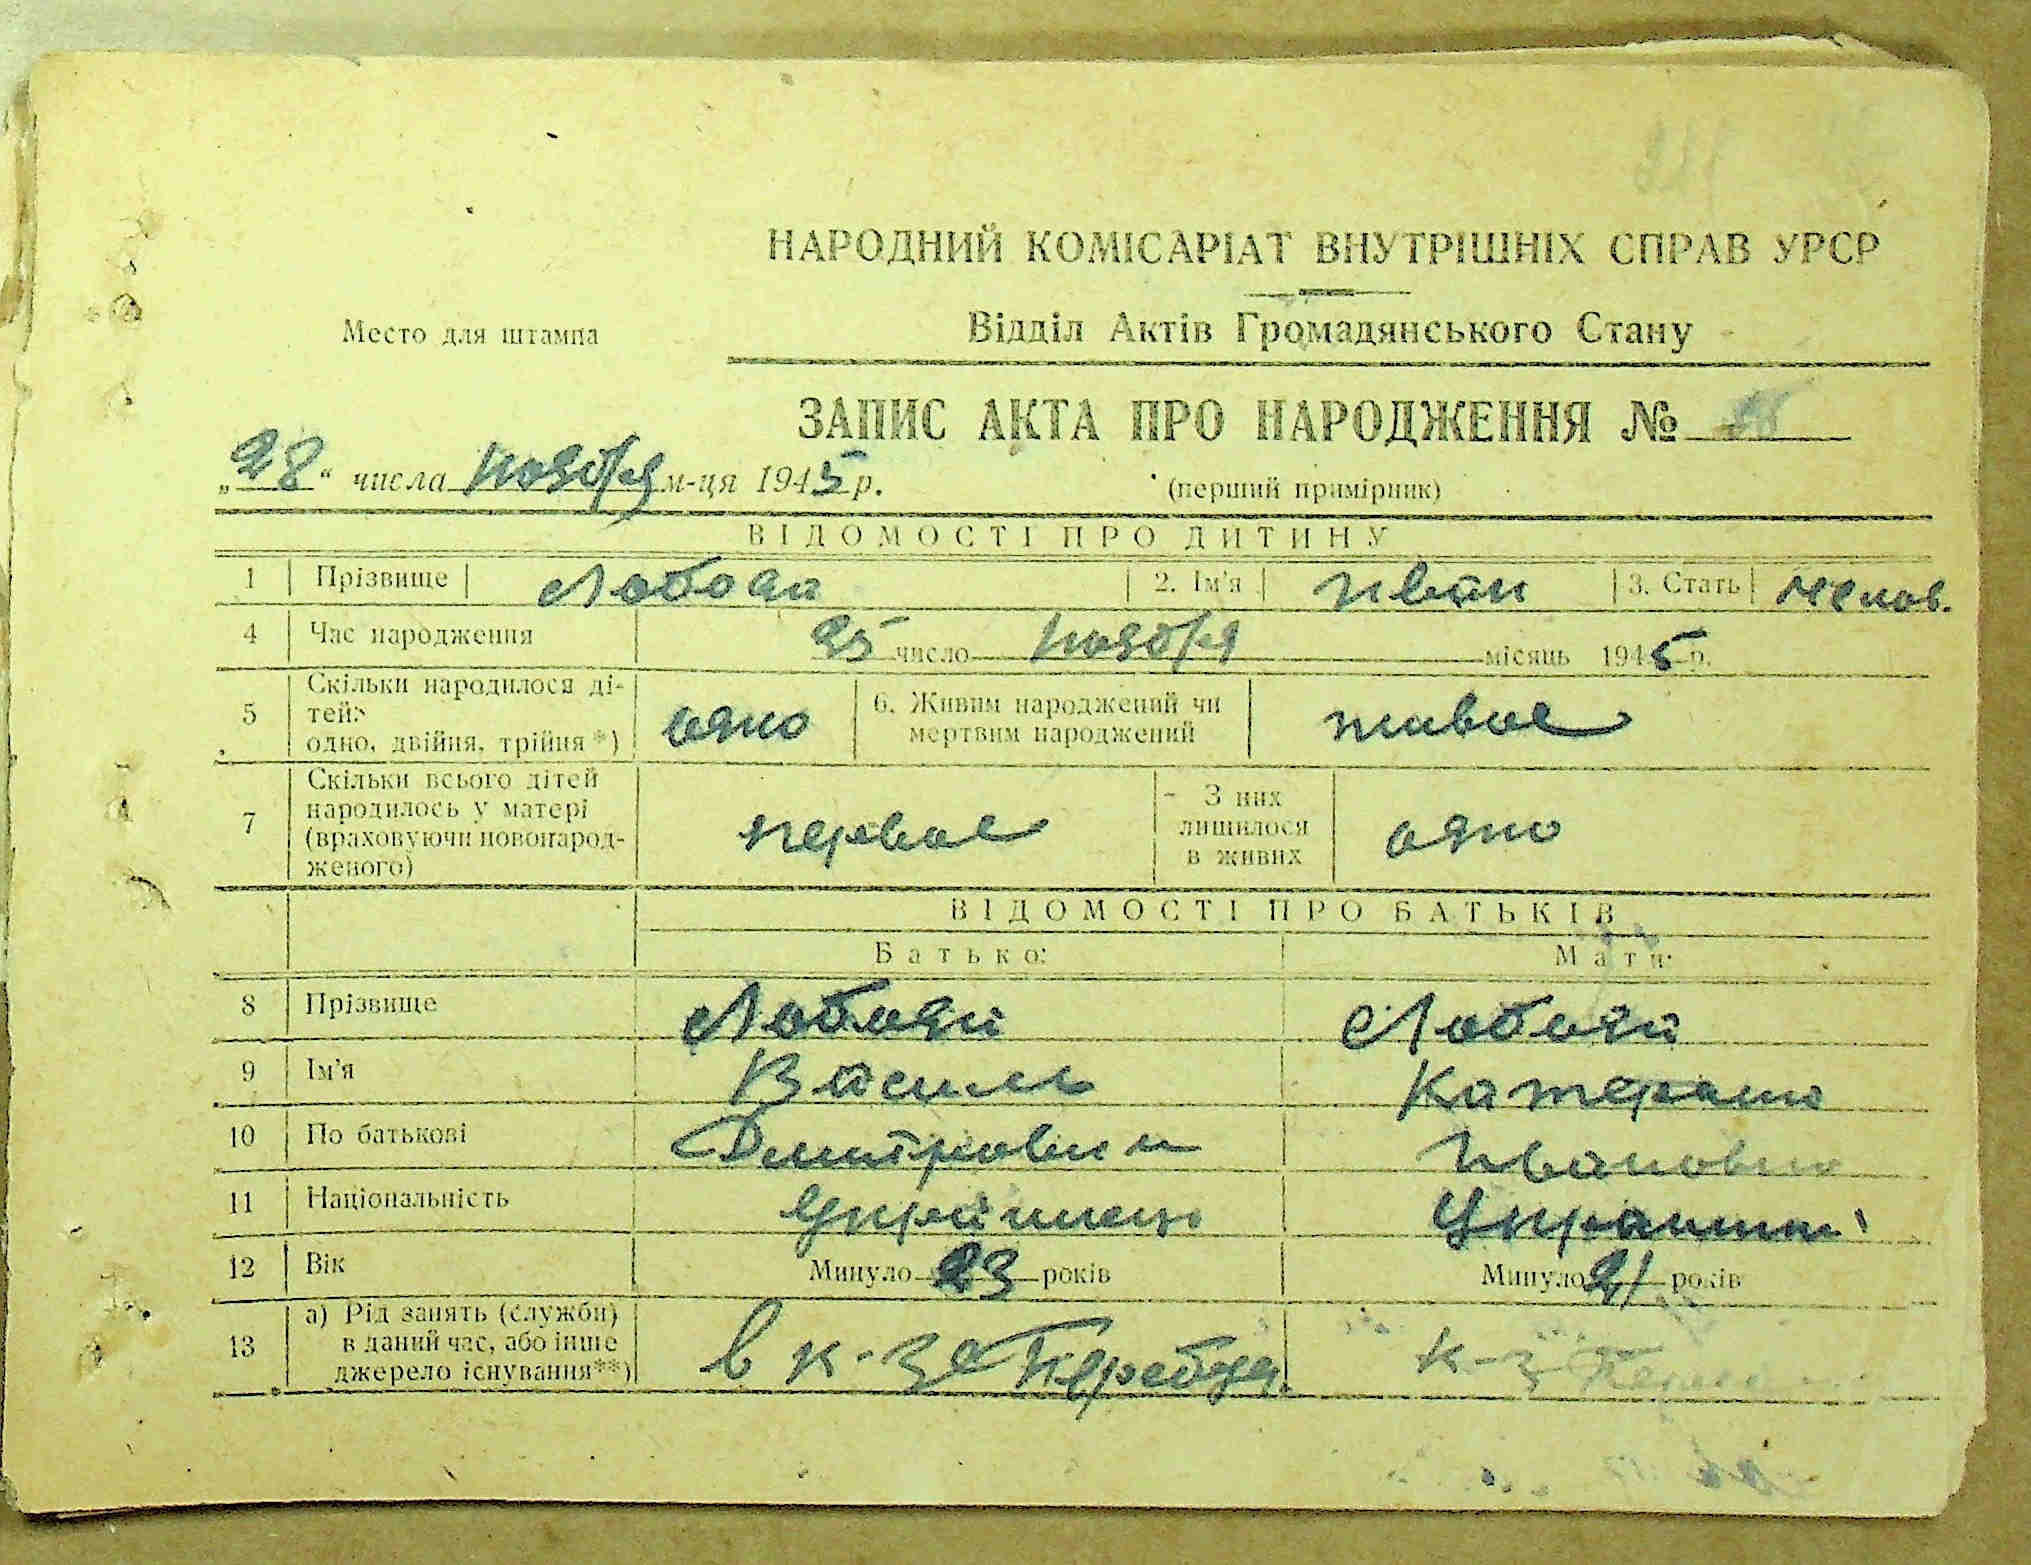 НАРОДНИЙ КОМІСАРІАТ ВНУТРІШНІХ СПРАВ УРСР
Место для штампа
Відділ Актів Громадянського Стану
ЗАПИС АКТА ПРО НАРОДЖЕННЯ №
„28“ числа ноября м-ця 1945 р.
(перший примірник)
ВІДОМОСТІ ПРО ДИТИНУ
1 Прізвище Лобода 2. Ім'я Иван 3. Стать
4 Час народження 25 число ноября місяць 1945 р.
5 Скільки народилося ді-
тей:
одно, двійня, трійня *) одно
6. Живим народжений чи
мертвим народжений живое
7 Скільки всього дітей
народилось у матері
(враховуючи новонарод-
женого) первое
З них
лишилося
в живих одно
ВІДОМОСТІ ПРО БАТЬКІВ
Батько: Мати:
8 Прізвище Лобода Лобода
9 Ім'я Василь Катерина
10 По батькові Дмитрович Ивановна
11 Національність Украинец Украинка
12 Вік Минуло 23 років Минуло 21 років
13 а) Рід занять (служби)
в даний час, або інше
джерело існування**) в к-зе к-з